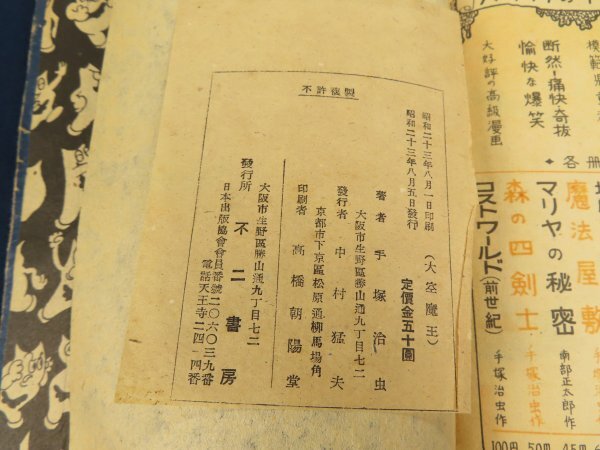 不許複製
昭和二十三年八月一日印刷
昭和二十三年八月五日發行
(大空魔王)
定價金五十圓
著者 手塚治虫
大阪市生野區勝山通九丁目七二
發行者 中村猛夫
京都市下京區松原通柳馬場角
印刷者 高橋朝陽堂
大阪市生野區勝山通九丁目七二
發行所 不二書房
日本出版協會會員番號二〇六〇三九番
電話天王寺二四一四番
断然!痛快奇抜
愉快な爆笑
大好評の高級漫画
各册
魔法屋敷
マリヤの秘密
南部正太郎作
森の四剣士
手塚治虫作
ロストワールド(前世紀)
手塚治虫作
100円
50円
45円